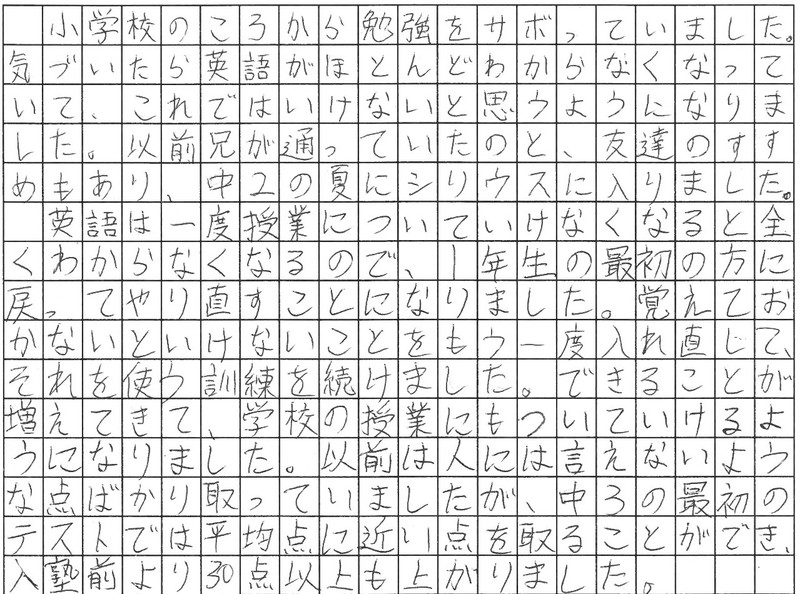 小学校のころから勉強をサボっていました。
気づいたら英語がほとんどわからなくなって
いて、これではいけないと思うようになりま
した。以前兄が通っていたのと、友達のすす
めもあり、中2の夏にシリウスに入りました。
英語は一度授業についていけなくなると全
くわからなくなるので、1年生の最初の方に
戻ってやり直すことになりました。覚えてお
かないといけないことをもう一度入れ直して、
それを使う訓練を続けました。できることが
増えてきて、学校の授業にもついていけるよ
うになりました。以前は人には言えないよう
な点ばかり取っていましたが、中3の最初の
テストでは平均点に近い点を取ることができ、
入塾前より30点以上も上がりました。